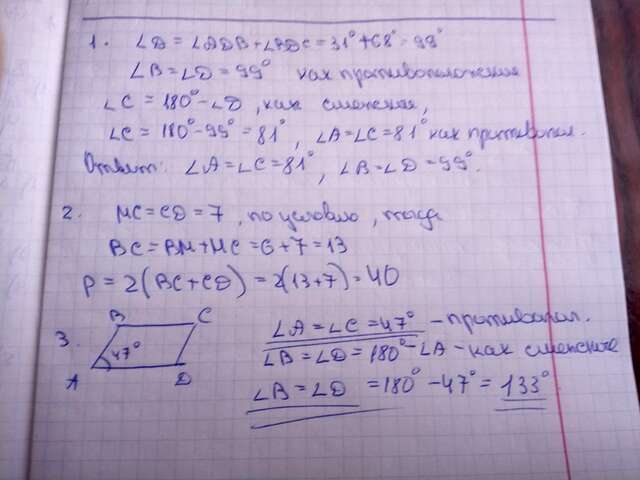 1. ∠B = ∠ABD + ∠DBC = 31° + 68° = 99°
∠B = ∠D = 99° как противоположные
∠C = 180° - ∠D, как смежные,
∠C = 180° - 99° = 81°, ∠A = ∠C = 81° как противопол.
Ответ: ∠A = ∠C = 81°, ∠B = ∠D = 99°.
2. MC = CD = 7, по условию, тогда
BC = BM + MC = 6 + 7 = 13
P = 2(BC + CD) = 2(13 + 7) = 40
3.
B
C
47°
A
D
∠A = ∠C = 47° - противопол.
∠B = ∠D = 180° - ∠A - как смежные
∠B = ∠D = 180° - 47° = 133°